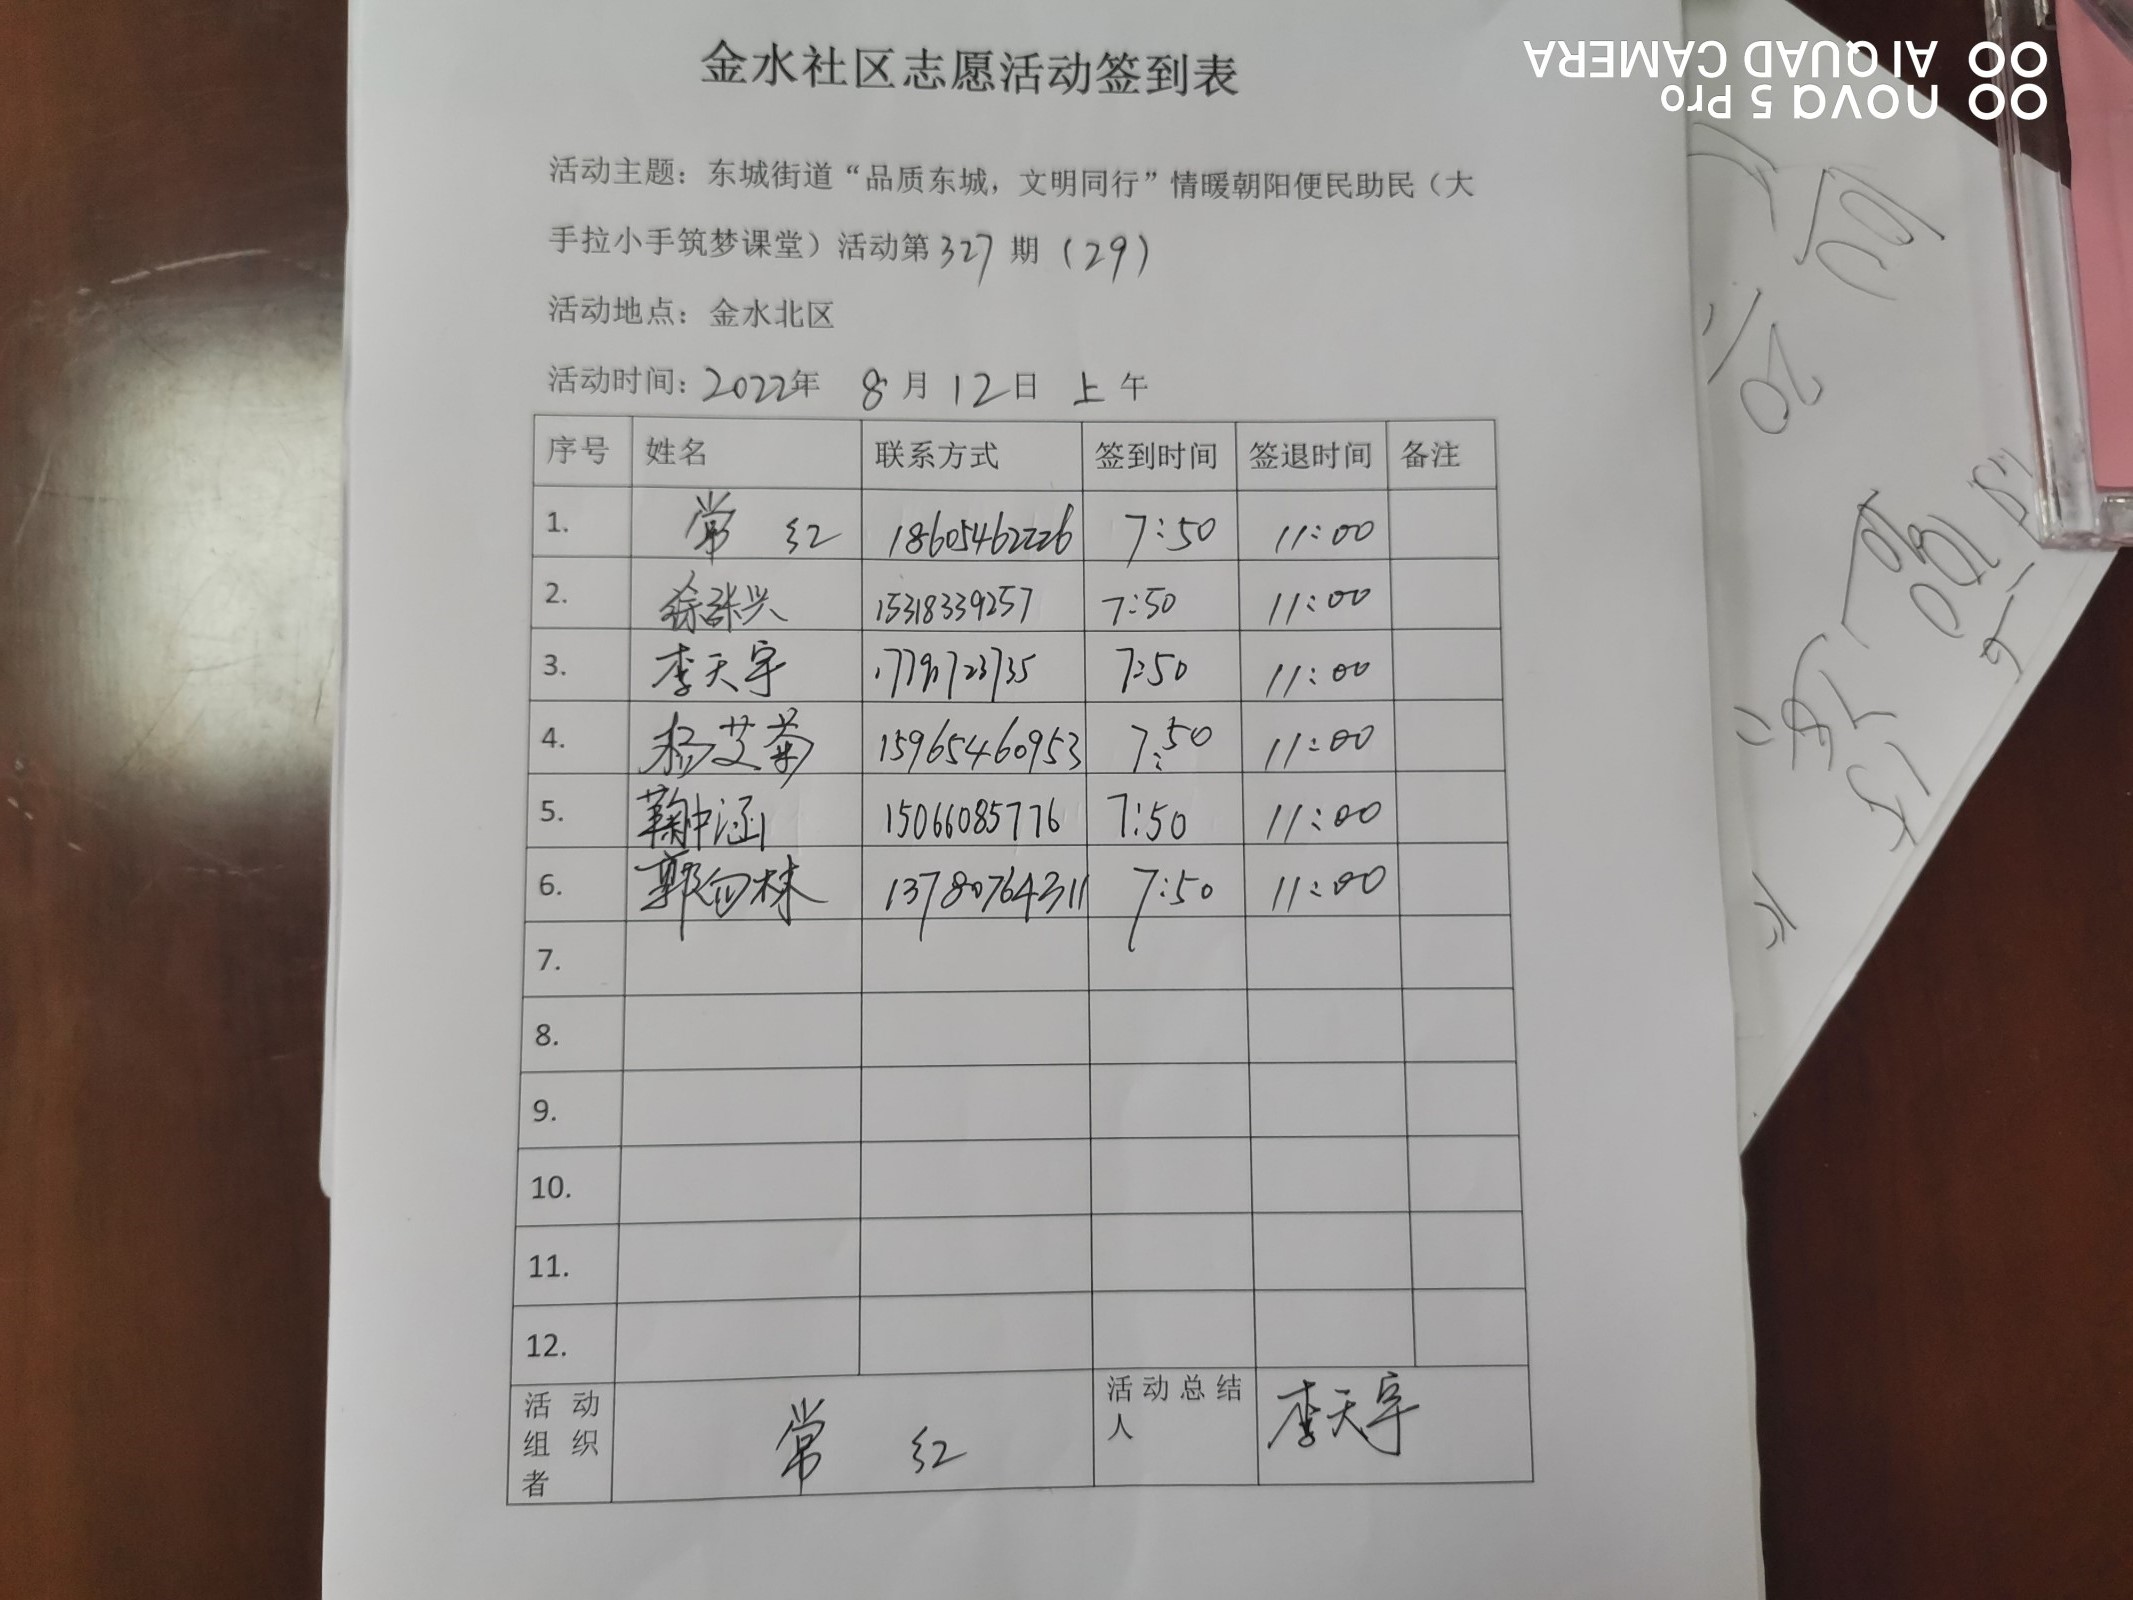 金水社区志愿活动签到表
活动主题：东城街道“品质东城，文明同行”情暖朝阳便民助民（大
手拉小手筑梦课堂）活动第327期（29）
活动地点：金水北区
活动时间：2022年 8月12日 上午
序号 姓名 联系方式 签到时间 签退时间 备注
1. 常红 18605462226 7:50 11:00
2. 徐张兴 15318339257 7:50 11:00
3. 李天宇 7:50 11:00
4. 杨艾菊 15965460953 7:50 11:00
5. 鞠中涵 15066085776 7:50 11:00
6. 郭 林 13780764311 7:50 11:00
7.
8.
9.
10.
11.
12.
活动组织者 常红 活动总结人 李天宇
nova 5 Pro
AI QUAD CAMERA